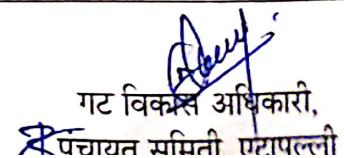 गट विकास अधिकारी,
पंचायत समिती एटापल्ली